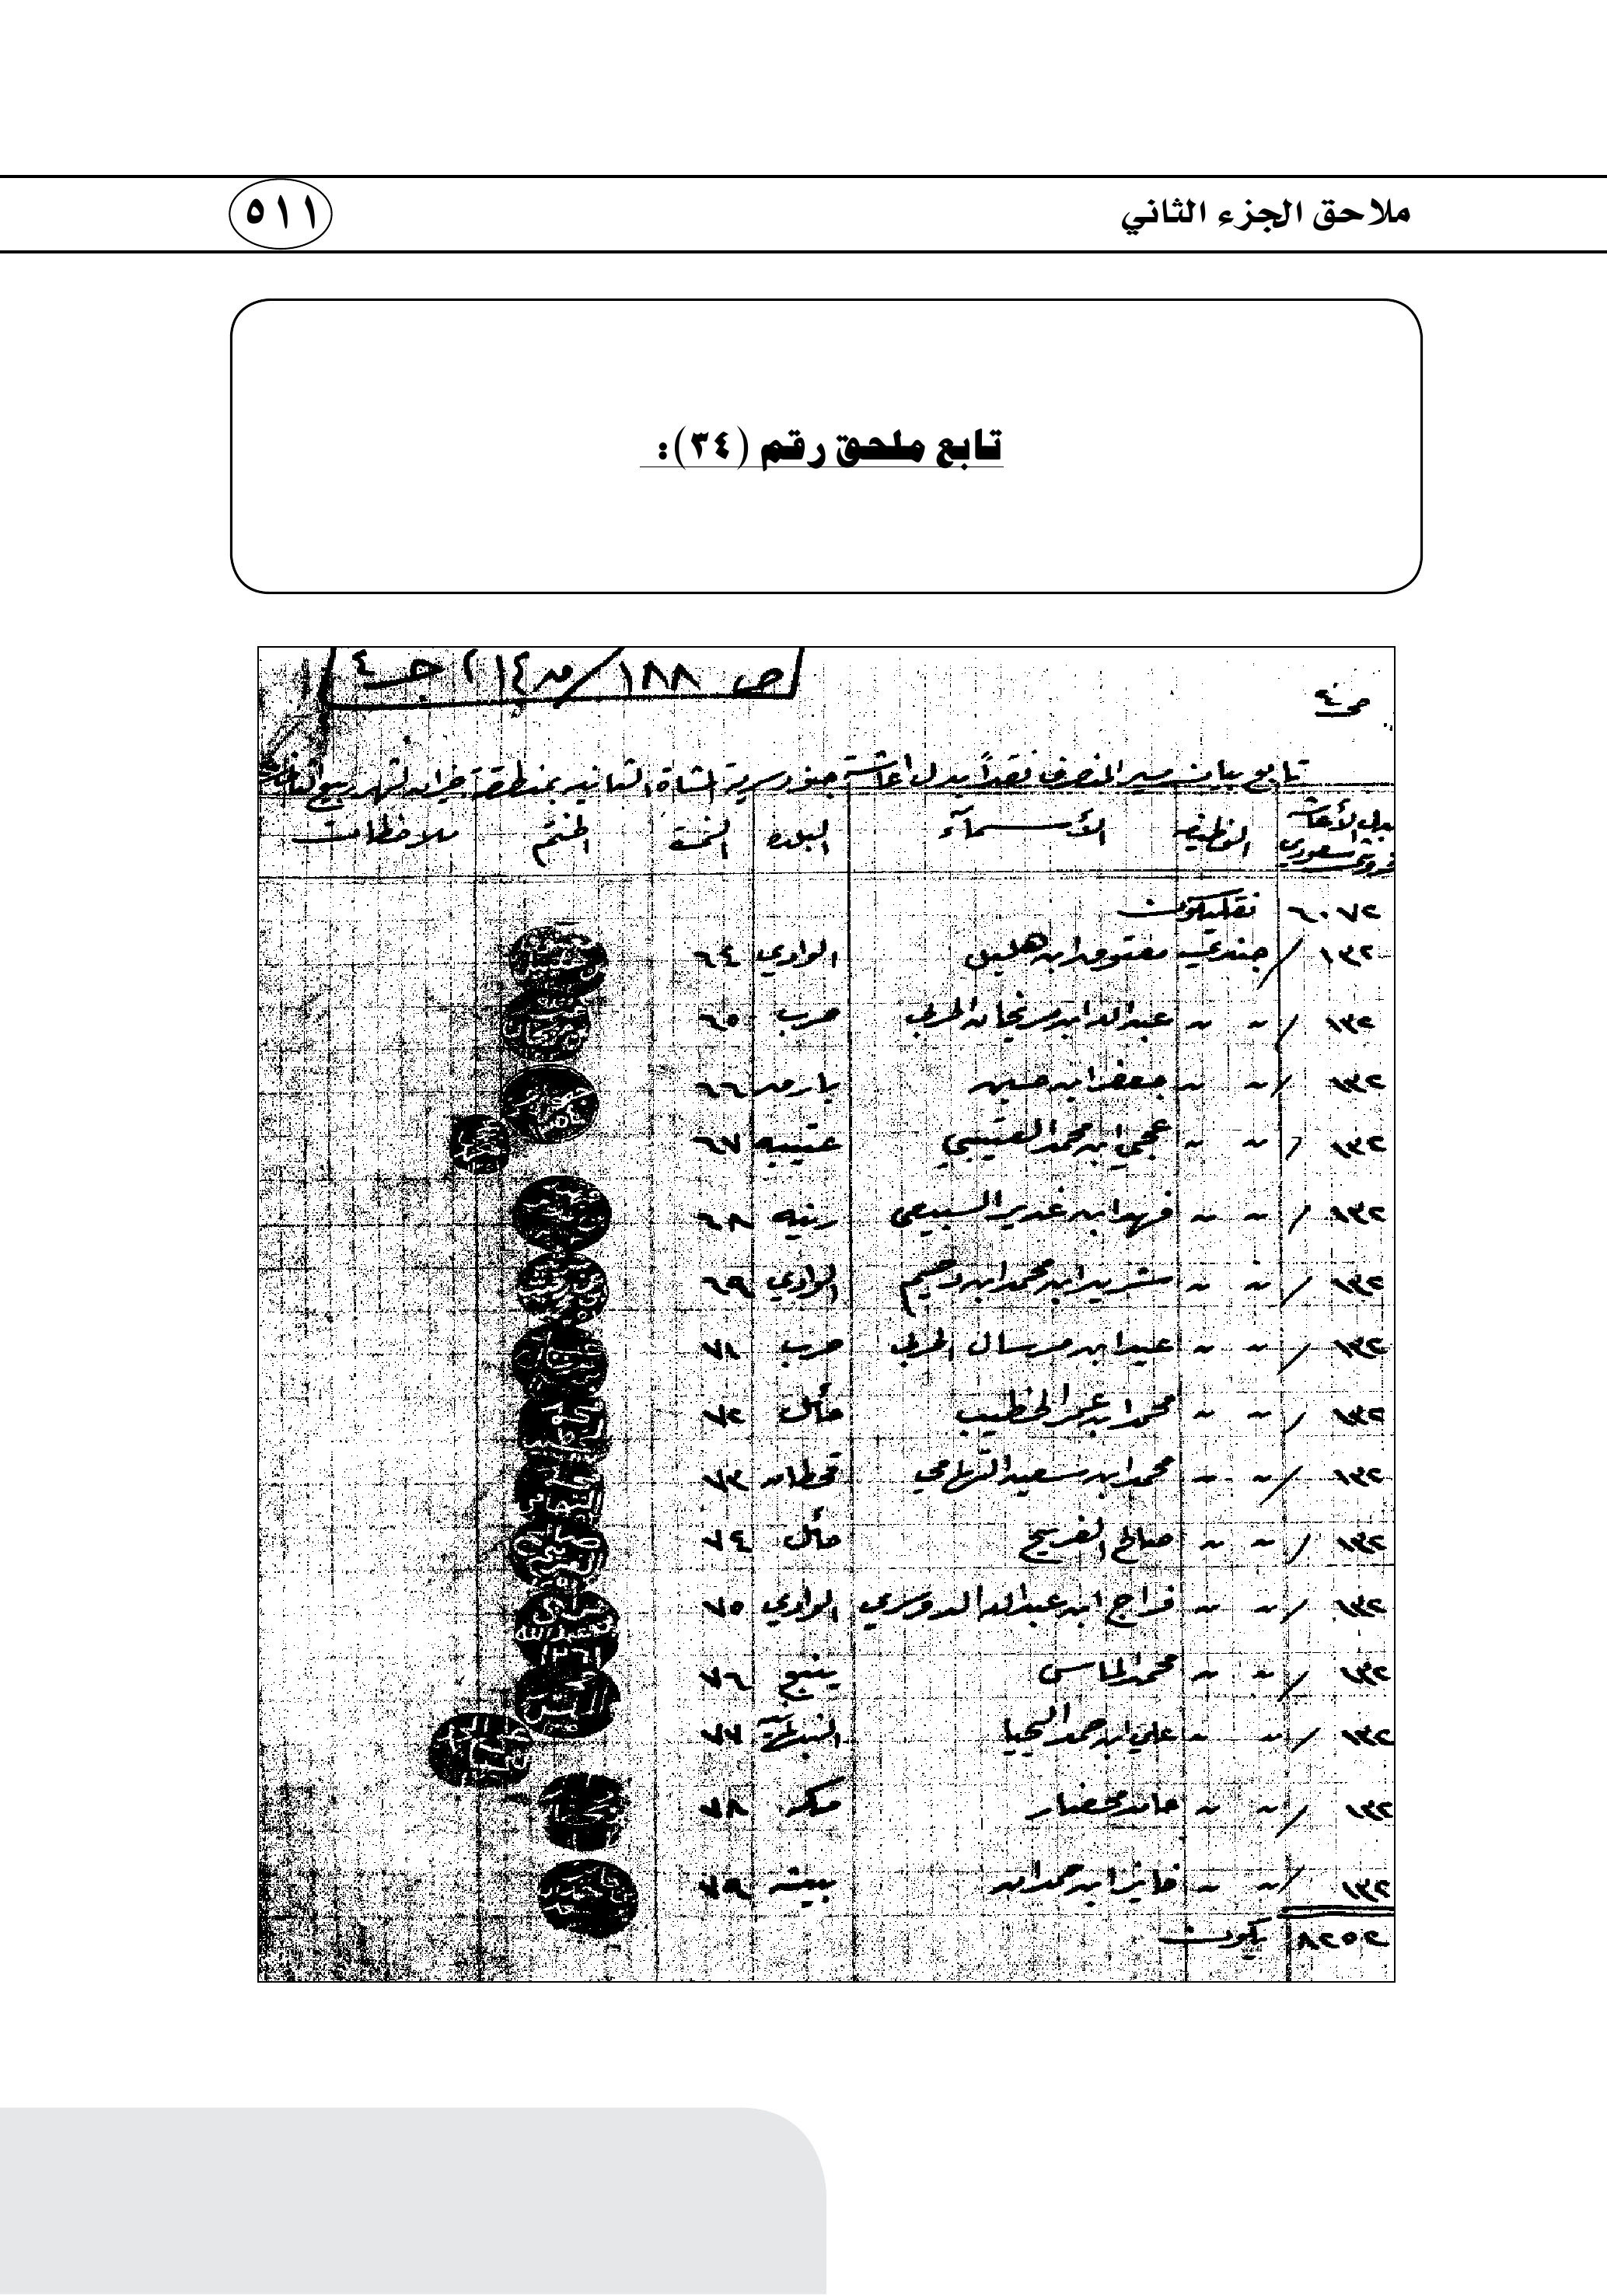 ملاحق الجزء الثاني ٥١١
تابع ملحق رقم (٣٤):
ص ١٨٨/ ج ٤
تابع بيان مسير المنصرف نقداً بدل اعاشة جنود سرية المشاة الثانية بمنطقة لشهر ربيع
بدل الأعاشة قروش سعودي الوظيفة الأسماء البلده النمرة الختم ملاحظات
٦٠٧٢
١٣٢ / جندي معتوق ابن هليل الوادي ٦٤
١٣٢ / ~ ~ عبدالله ابن الحربي حرب ٦٥
١٣٢ / ~ ~ جعفر ابن حسين ٦٦
١٣٢ / ~ ~ عجمي ابن محمد العتيبي عتيبه ٦٧
١٣٢ / ~ ~ فهد ابن غدير السبيعي رنيه ٦٨
١٣٢ / ~ ~ ابن محمد ابن الوادي ٦٩
١٣٢ / ~ ~ عيد ابن مرسال الحربي حرب ٧١
١٣٢ / ~ ~ محمد ابن عمر الخطيب حائل ٧٢
١٣٢ / ~ ~ محمد ابن سعيد التهامي قحطان ٧٣
١٣٢ / ~ ~ صالح الفريح حائل ٧٤
١٣٢ / ~ ~ فراج ابن عبدالله الدوسري الوادي ٧٥
١٣٢ / ~ ~ محمد الماس ينبع ٧٦
١٣٢ / ~ ~ علي ابن حمد اليحيا ٧٧
١٣٢ / ~ ~ حامد محضار مكه ٧٨
١٣٢ / ~ ~ فايز ابن حمدان بيشه ٧٩
٨٢٥٢ يكون